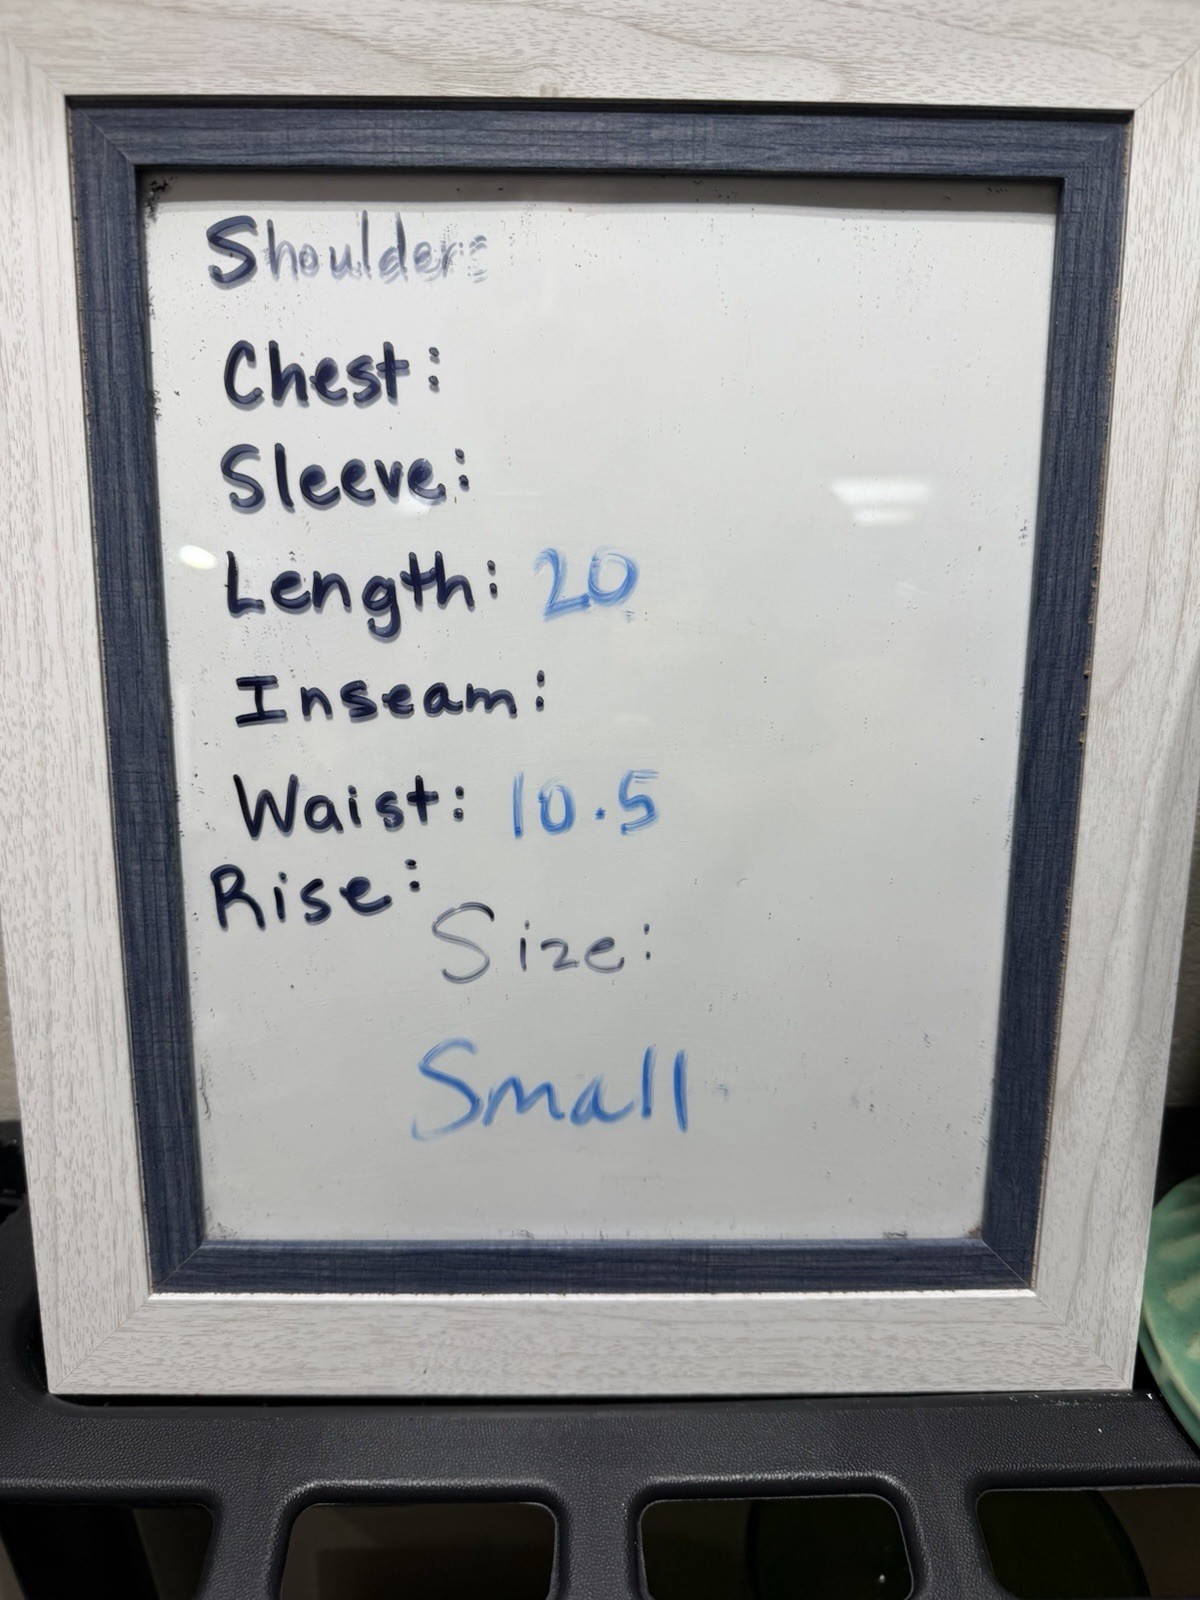 Shoulders
Chest:
Sleeve:
Length: 20
Inseam:
Waist: 10.5
Rise:
Size:
Small